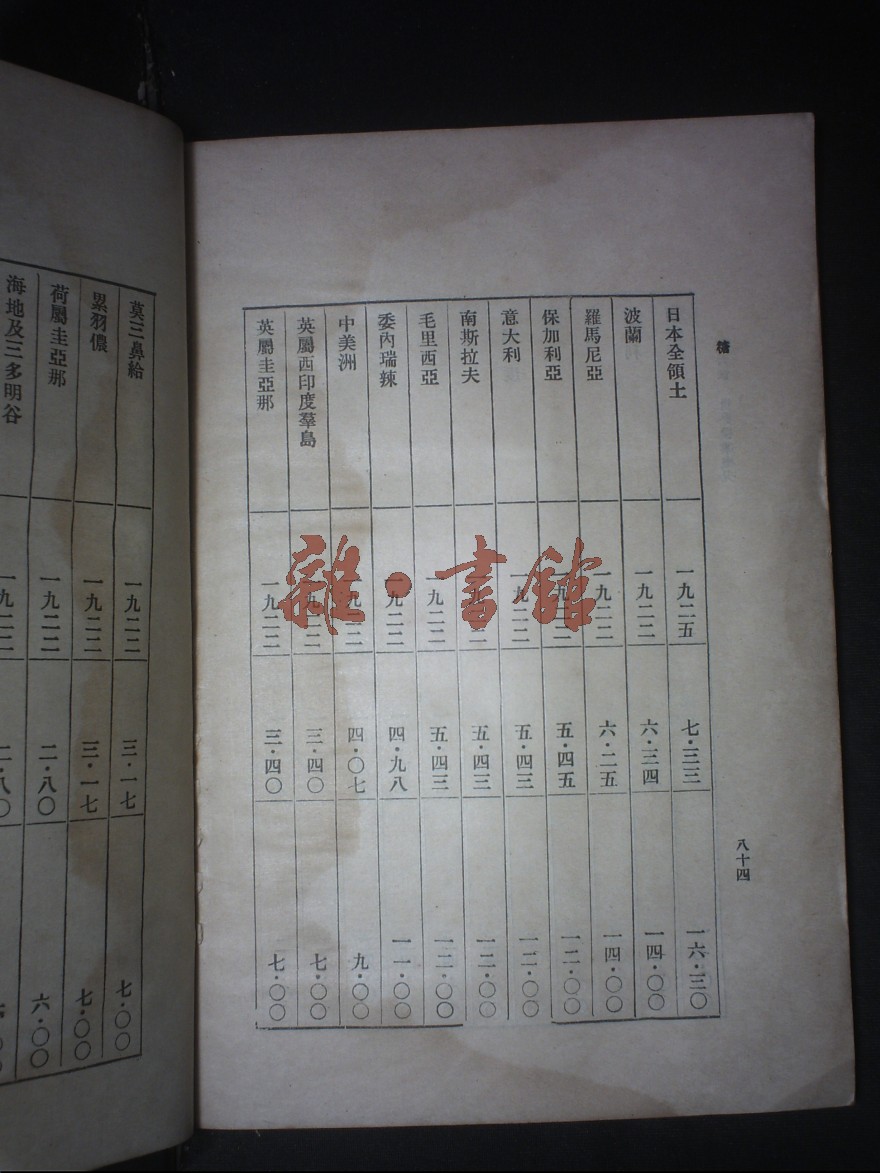 糖
八十四
日本全領土 一九二五 七·三三 一六·三〇
波蘭 一九二二 六·三四 一四·〇〇
羅馬尼亞 一九二二 六·二五 一四·〇〇
保加利亞 一九二二 五·四五 一二·〇〇
意大利 一九二二 五·四三 一二·〇〇
南斯拉夫 一九二二 五·四三 一二·〇〇
毛里西亞 一九二二 五·四三 一二·〇〇
委內瑞辣 一九二二 四·九八 一一·〇〇
中美洲 一九二二 四·〇七 九·〇〇
英屬西印度羣島 一九二二 三·四〇 七·〇〇
英屬圭亞那 一九二二 三·四〇 七·〇〇
莫三鼻給 一九二二 三·一七 七·〇〇
累羽儂 一九二二 三·一七 七·〇〇
荷屬圭亞那 一九二二 二·八〇 六·〇〇
海地及三多明谷 一九二二 二·八〇 六·〇〇
雜·書館